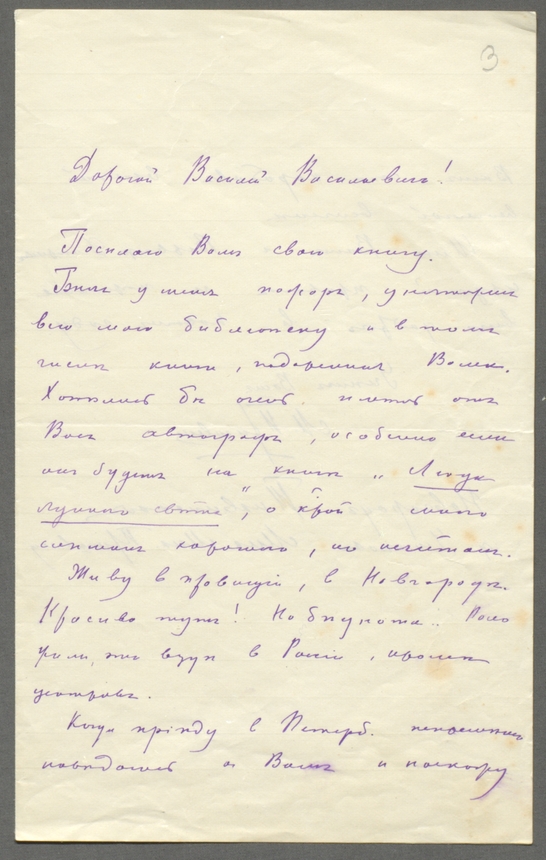 3
Дорогой Василій Васильевичъ!
Посылаю Вамъ свою книгу.
Былъ у меня пожаръ, уничтожил
всю мою библіотеку и въ томъ
числѣ книги, подаренныя Вами.
Хотѣлось бы очень имѣть отъ
Васъ автографъ, особенно если
онъ будетъ на книгѣ „Люди
луннаго свѣта", о к-рой много
слышалъ хорошаго, но не читалъ.
Живу въ провинціи, в Новгородѣ.
Красиво тутъ! Но скучно..
какъ вездѣ в Россіи, кромѣ
Когда пріѣду в Петерб. непремѣнно
повидаюсь съ Вами и